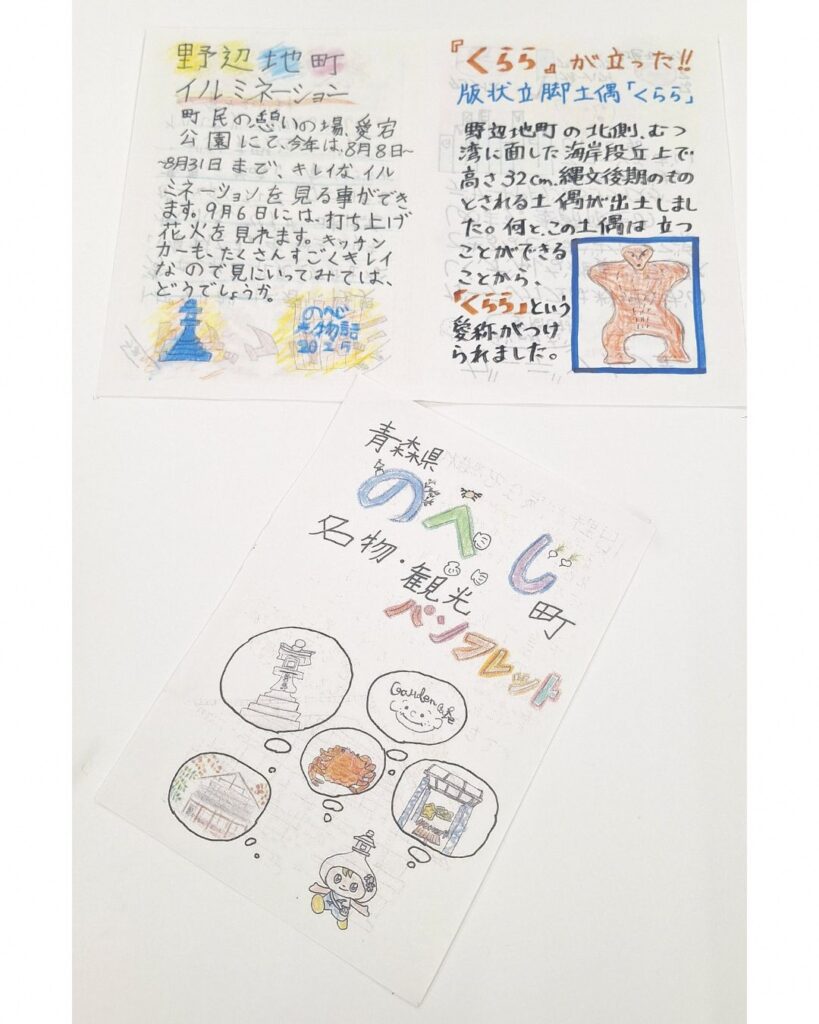 野辺地町
イルミネーション
町民の憩いの場、愛宕
公園にて、今年は、8月8日〜
〜8月31日まで、キレイなイル
ミネーションを見る事ができ
ます。9月6日には、打ち上げ
花火を見れます。キッチン
カーも、たくさんすごくキレイ
なので見にいってみては、
どうでしょうか。
のへじ
物語
2025
『くらら』が立った!!
版状立脚土偶「くらら」
野辺地町の北側、むつ
湾に面した海岸段丘上で
高さ32cm、縄文後期のもの
とされる土偶が出土しまし
た。何と、この土偶は立つ
ことができる
ことから、
「くらら」という
愛称がつけ
られました。
青森県
のへじ町
名物・観光
パンフレット
Garden cafe